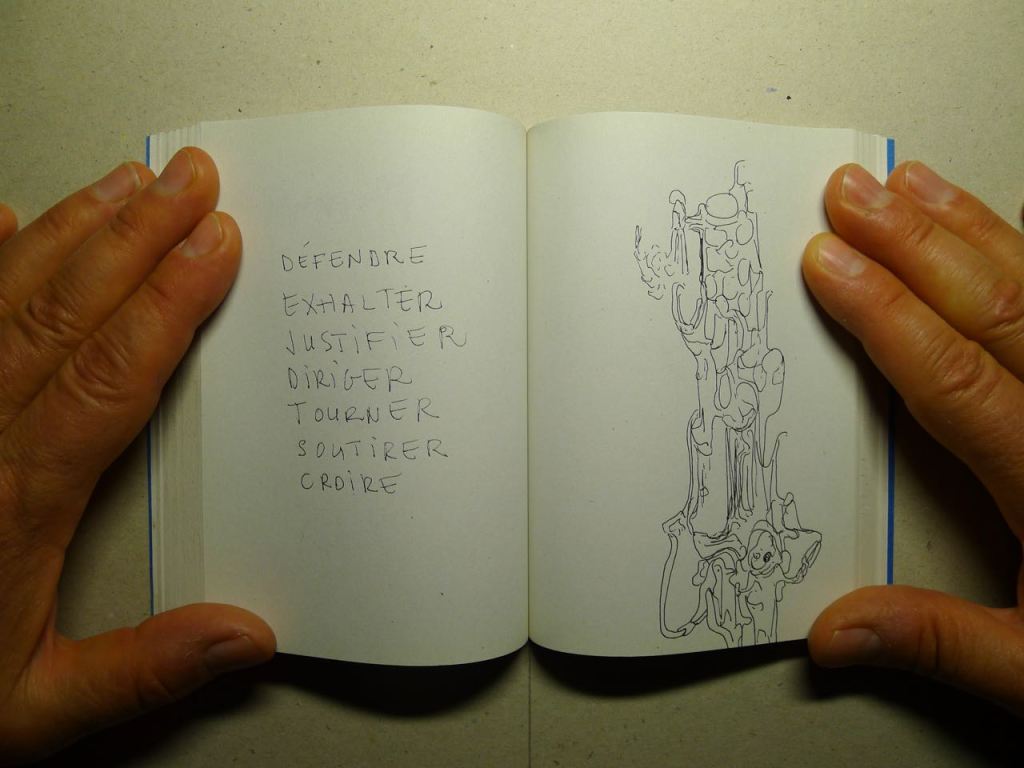 DÉFENDRE
EXHALTER
JUSTIFIER
DIRIGER
TOURNER
SOUTIRER
CROIRE